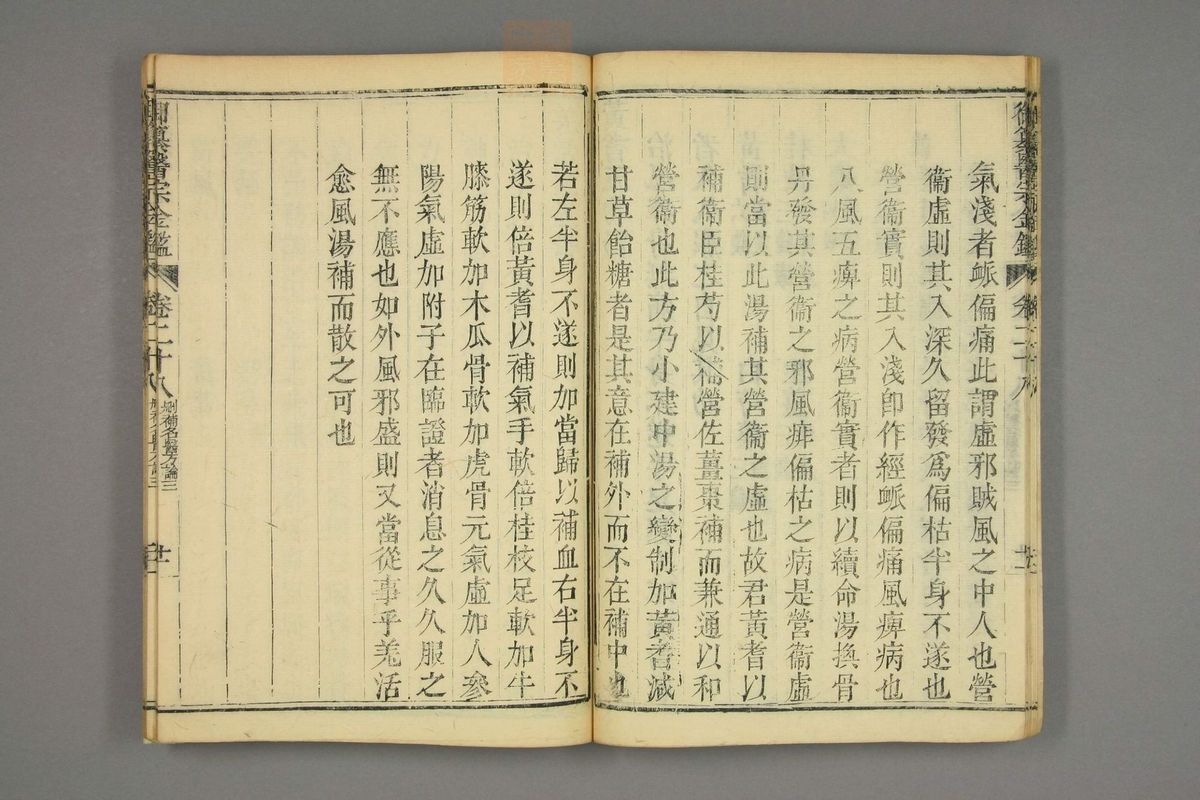 御纂醫宗金鑑
卷二十八
氣淺者脈偏痛此謂虛邪賊風之中人也營
衞虛則其入深久留發爲偏枯半身不遂也
營衞實則其入淺卽作經脈偏痛風痺病也
八風五痺之病營衞實者則以續命湯換骨
丹發其營衞之邪風痱偏枯之病是營衞虛
則當以此湯補其營衞之虛也故君黃耆以
補衞臣桂芍以補營佐薑棗補而兼通以和
營衞也此方乃小建中湯之變制加黃耆減
甘草飴糖者是其意在補外而不在補中也
若左半身不遂則加當歸以補血右半身不
遂則倍黃耆以補氣手軟倍桂枝足軟加牛
膝筋軟加木瓜骨軟加虎骨元氣虛加人參
陽氣虛加附子在臨證者消息之久久服之
無不應也如外風邪盛則又當從事乎羗活
愈風湯補而散之可也
御纂醫宗金鑑
卷二十八
刪補名醫方論三